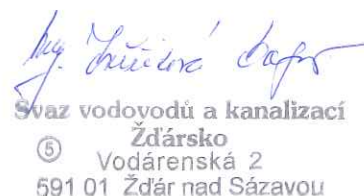 Ing.
Svaz vodovodů a kanalizací
Žďársko
⑤ Vodárenská 2
591 01 Žďár nad Sázavou